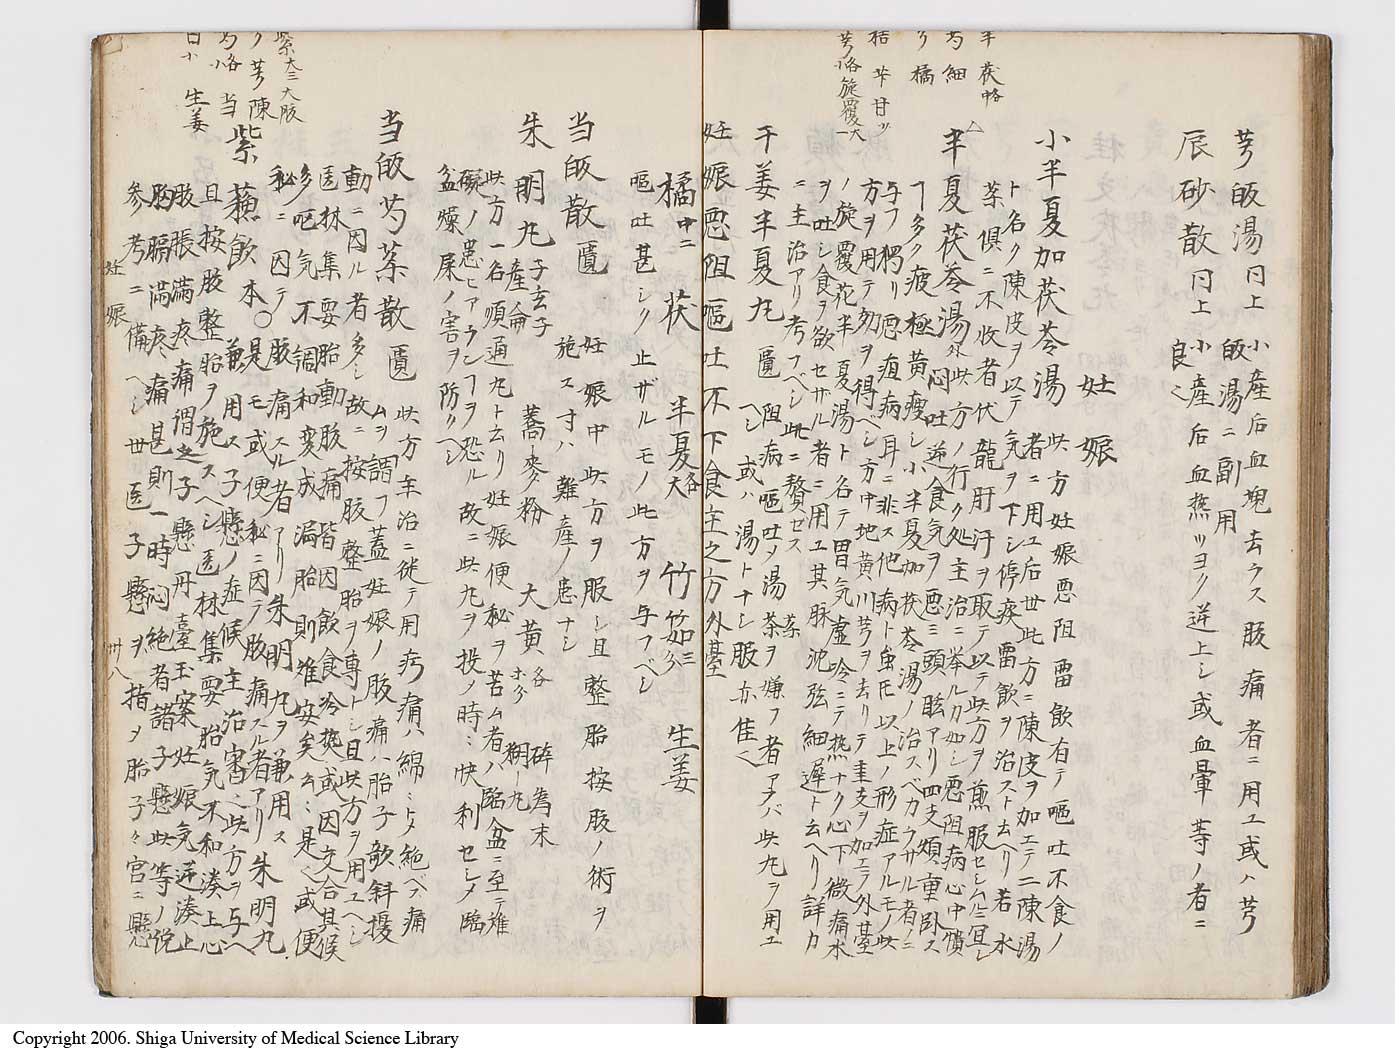 芎皈湯 同上 小産后血塊去ラス腹痛者ニ用ユ或ハ芎
皈湯ニ副用
辰砂散 同上 小産后血熱ツヨク逆上シ或血暈等ノ者ニ
良〱
妊娠
小半夏加茯苓湯 此方妊娠悪阻畱飲有テ嘔吐不食ノ
者ニ用ユ后世此方ニ陳皮ヲ加エテ二陳湯
ト名ク陳皮ヲ以テ気ヲ下シ停痰畱飲ヲ治スト云ヘリ若水
薬倶ニ不收者伏龍肝汁ヲ取テ以テ此方ヲ煎服セシム
半夏茯苓湯 外 此方ノ行ク処主治ニ挙ル力如シ悪阻病心中憒
悶吐逆食気ヲ悪ミ頭眩アリ四支煩重臥ス
多ク疲極黄痩シ小半夏加茯苓湯ノ治スベカラサル者ニ
与フ獨リ悪疽病耳ニ非ス他病ト虽圧以上ノ形症アルモノ此
方ヲ用テ効ヲ得ヘシ方中地黄川芎ヲ去リテ圭支ヲ加エテ外臺
ノ旋覆花半夏湯ト名テ胃気虚冷ニテ熱ナク心下微痛水
ヲ吐シ食ヲ欲セサル者ニ用ユ其脉沈弦細遅ト云ヘリ詳カ
ニ主治アリ考フベシ此ニ贅セス
干姜半夏丸 匱 阻病嘔吐メ湯薬ヲ嫌フ者アラバ此丸ヲ用エ
ヘシ 或ハ湯トナシ服亦佳〱
妊娠悪阻嘔吐不下食主之方 外臺
橘 中二 茯 半夏 各大 竹筎 三分 生姜
嘔吐甚シク止ザルモノ此方ヲ与フベシ
当皈散 匱 妊娠中此方ヲ服シ且整胎按腹ノ術ヲ
施ス寸ハ難産ノ患ナシ
朱明丸 子玄子産論 蕎麥粉 大黄 各 碎為末
糊丸
此方一名順通丸ト云リ妊娠便秘ヲ苦ム者ハ臨盆ニ至テ推
礙ノ患ヒアランヿヲ恐ル故ニ此丸ヲ投ノ時ミ快利セシメ臨
盆燥屎ノ害ヲ防クヘシ
当皈芍薬散 匱 此方本治ニ従テ用疞痛ハ綿ミトメ絶ベズ痛
ムヲ謂フ蓋妊娠ノ腹痛ハ胎子欹斜擾
動ニ因ル者多シ故ニ按腹整胎ヲ專トシ且此方ヲ用ユヘシ
医林集要胎動腹痛皆因飲食冷熱或因交合其候
多呕気不調和変成漏胎則難安矣云ミ是〱或便
秘ニ因テ腹痛スル者アリ朱明丸ヲ兼用ス
紫蘓飲 本 ○是モ或便秘ニ因テ腹痛スル者アリ朱明丸
兼用ス子懸ノ症候主治審ニ此方ヲ与ヘ
且按腹整胎ヲ施スヘシ医林集要胎気不和湊上心
腹脹滿疼痛謂之子懸丹臺玉案妊娠気逆湊上
胸膈滿疼痛甚則一時悶絶者諸子懸此等ノ説
参考ニ備ヘシ世医子懸ヲ指メ胎子々宮ニ懸
半 茯 中各
芍 細
夕 橘
桔 芊 甘 ッ
芎 各小 旋覆 大一
紫 大三 大腹
夕 芎 陳
芍 各小 当
生姜
妊娠
卅八
Copyright 2006. Shiga University of Medical Science Library